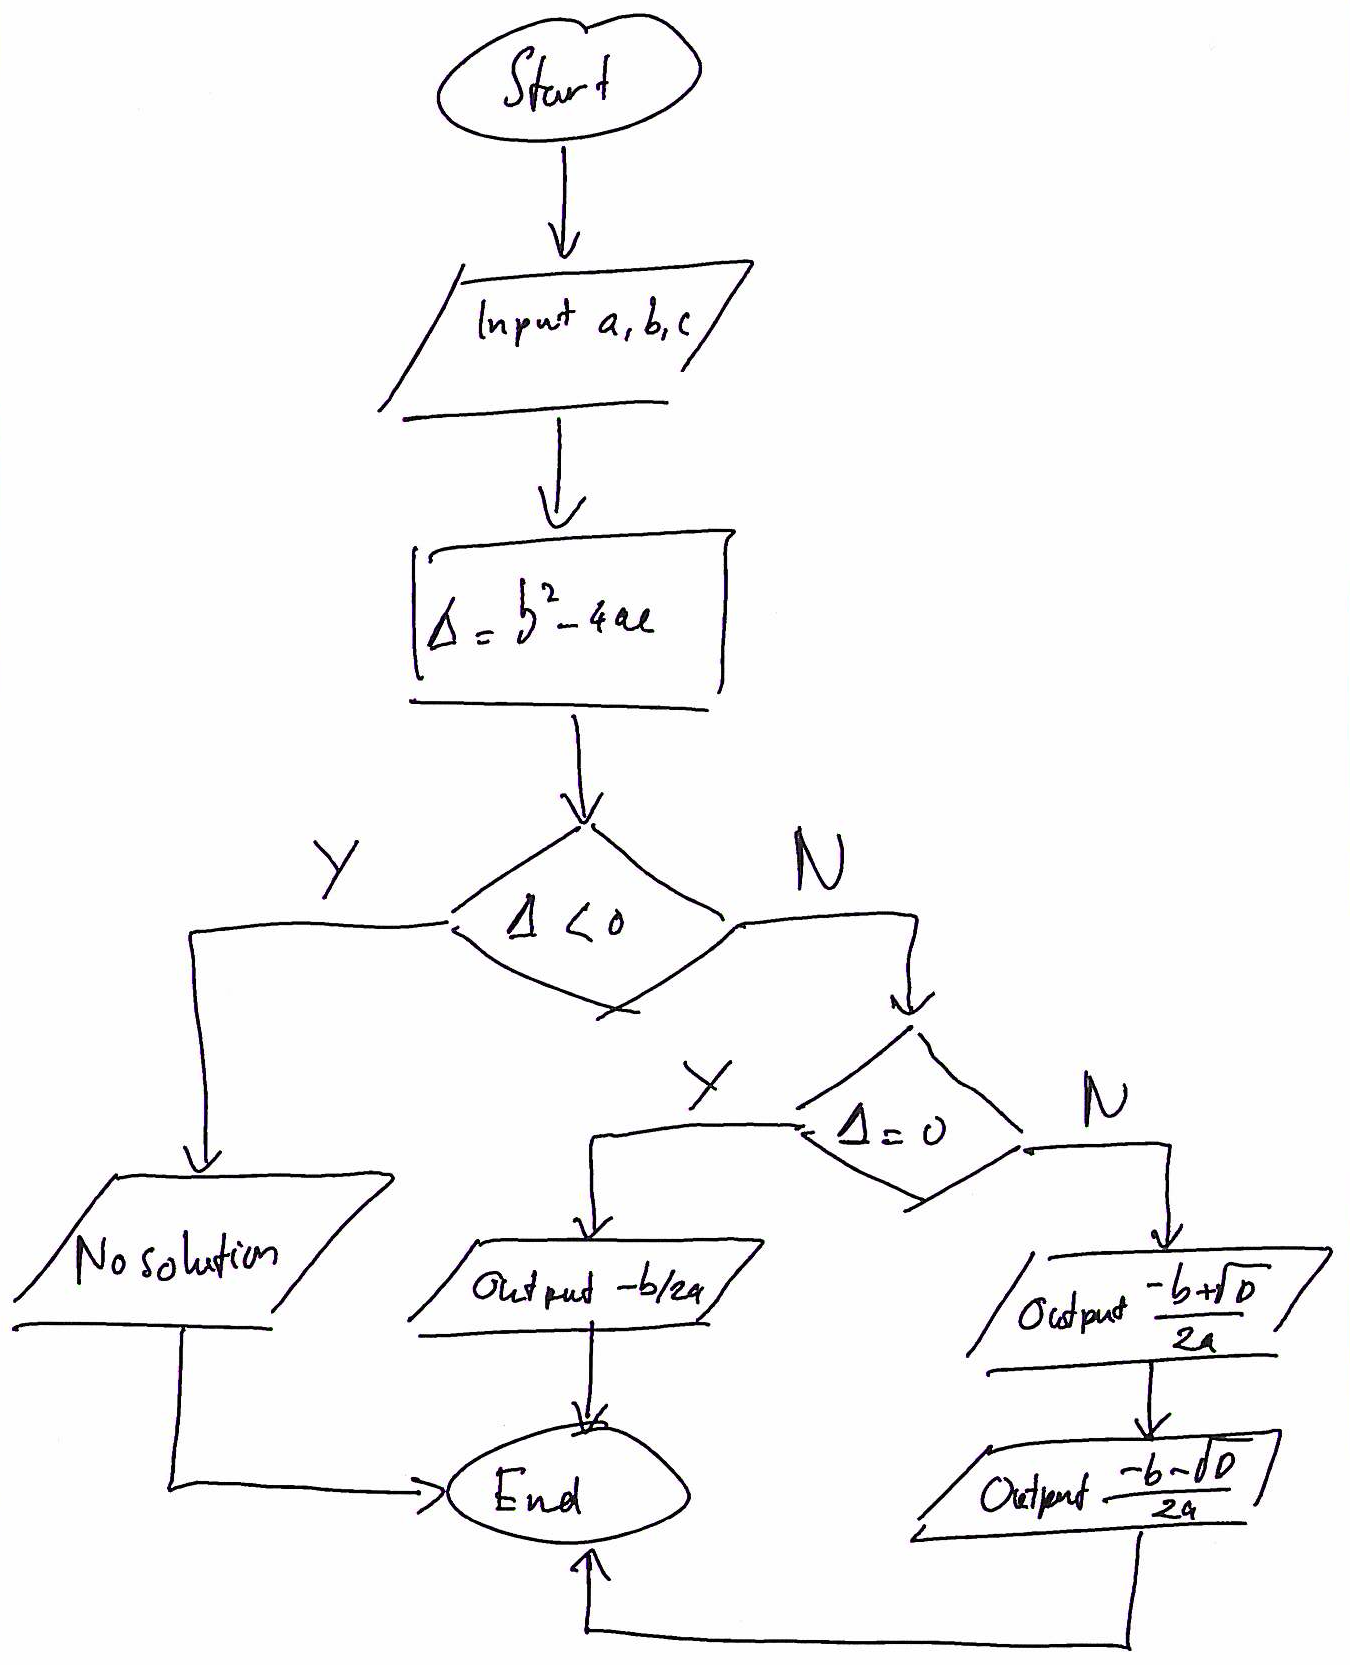 Start
Input a, b, c
Δ = b² - 4ac
Y
N
Δ < 0
Y
N
Δ = 0
No solution
Output -b/2a
Output (-b+√D)/2a
Output (-b-√D)/2a
End